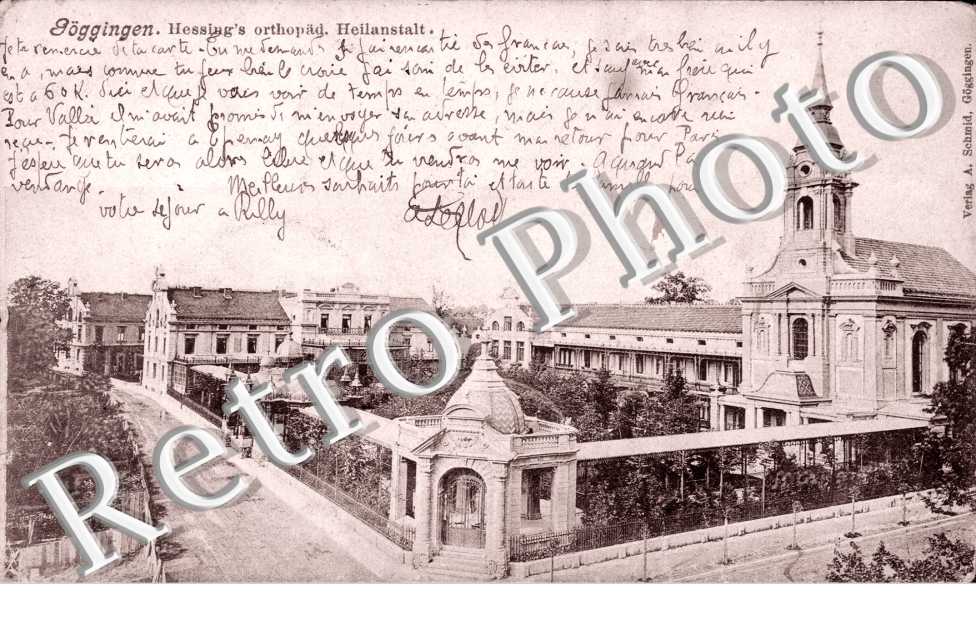 Göggingen. Hessing's orthopäd. Heilanstalt.
Je te remercie de ta carte. Tu me demandes si je rencontre des français, je sais très bien qu'il y
en a, mais comme tu peux bien le croire j'ai soin de les éviter, et sauf avec mon frère qui
est à 60 K. d'ici et que je vais voir de temps en temps, je ne cause jamais français.
Pour Valla il m'avait promis de m'envoyer son adresse, mais je n'ai encore rien
reçu. Je rentrerai à Epernay quelques jours avant mon retour pour Paris
J'espère que tu seras alors libre et que tu viendras me voir. A quand
vendange.
Meilleurs souhaits pour toi et toute ta famille pour
votre séjour à Rilly
Verlag A. Schmid, Göggingen.
Retro Photo
Retro Photo